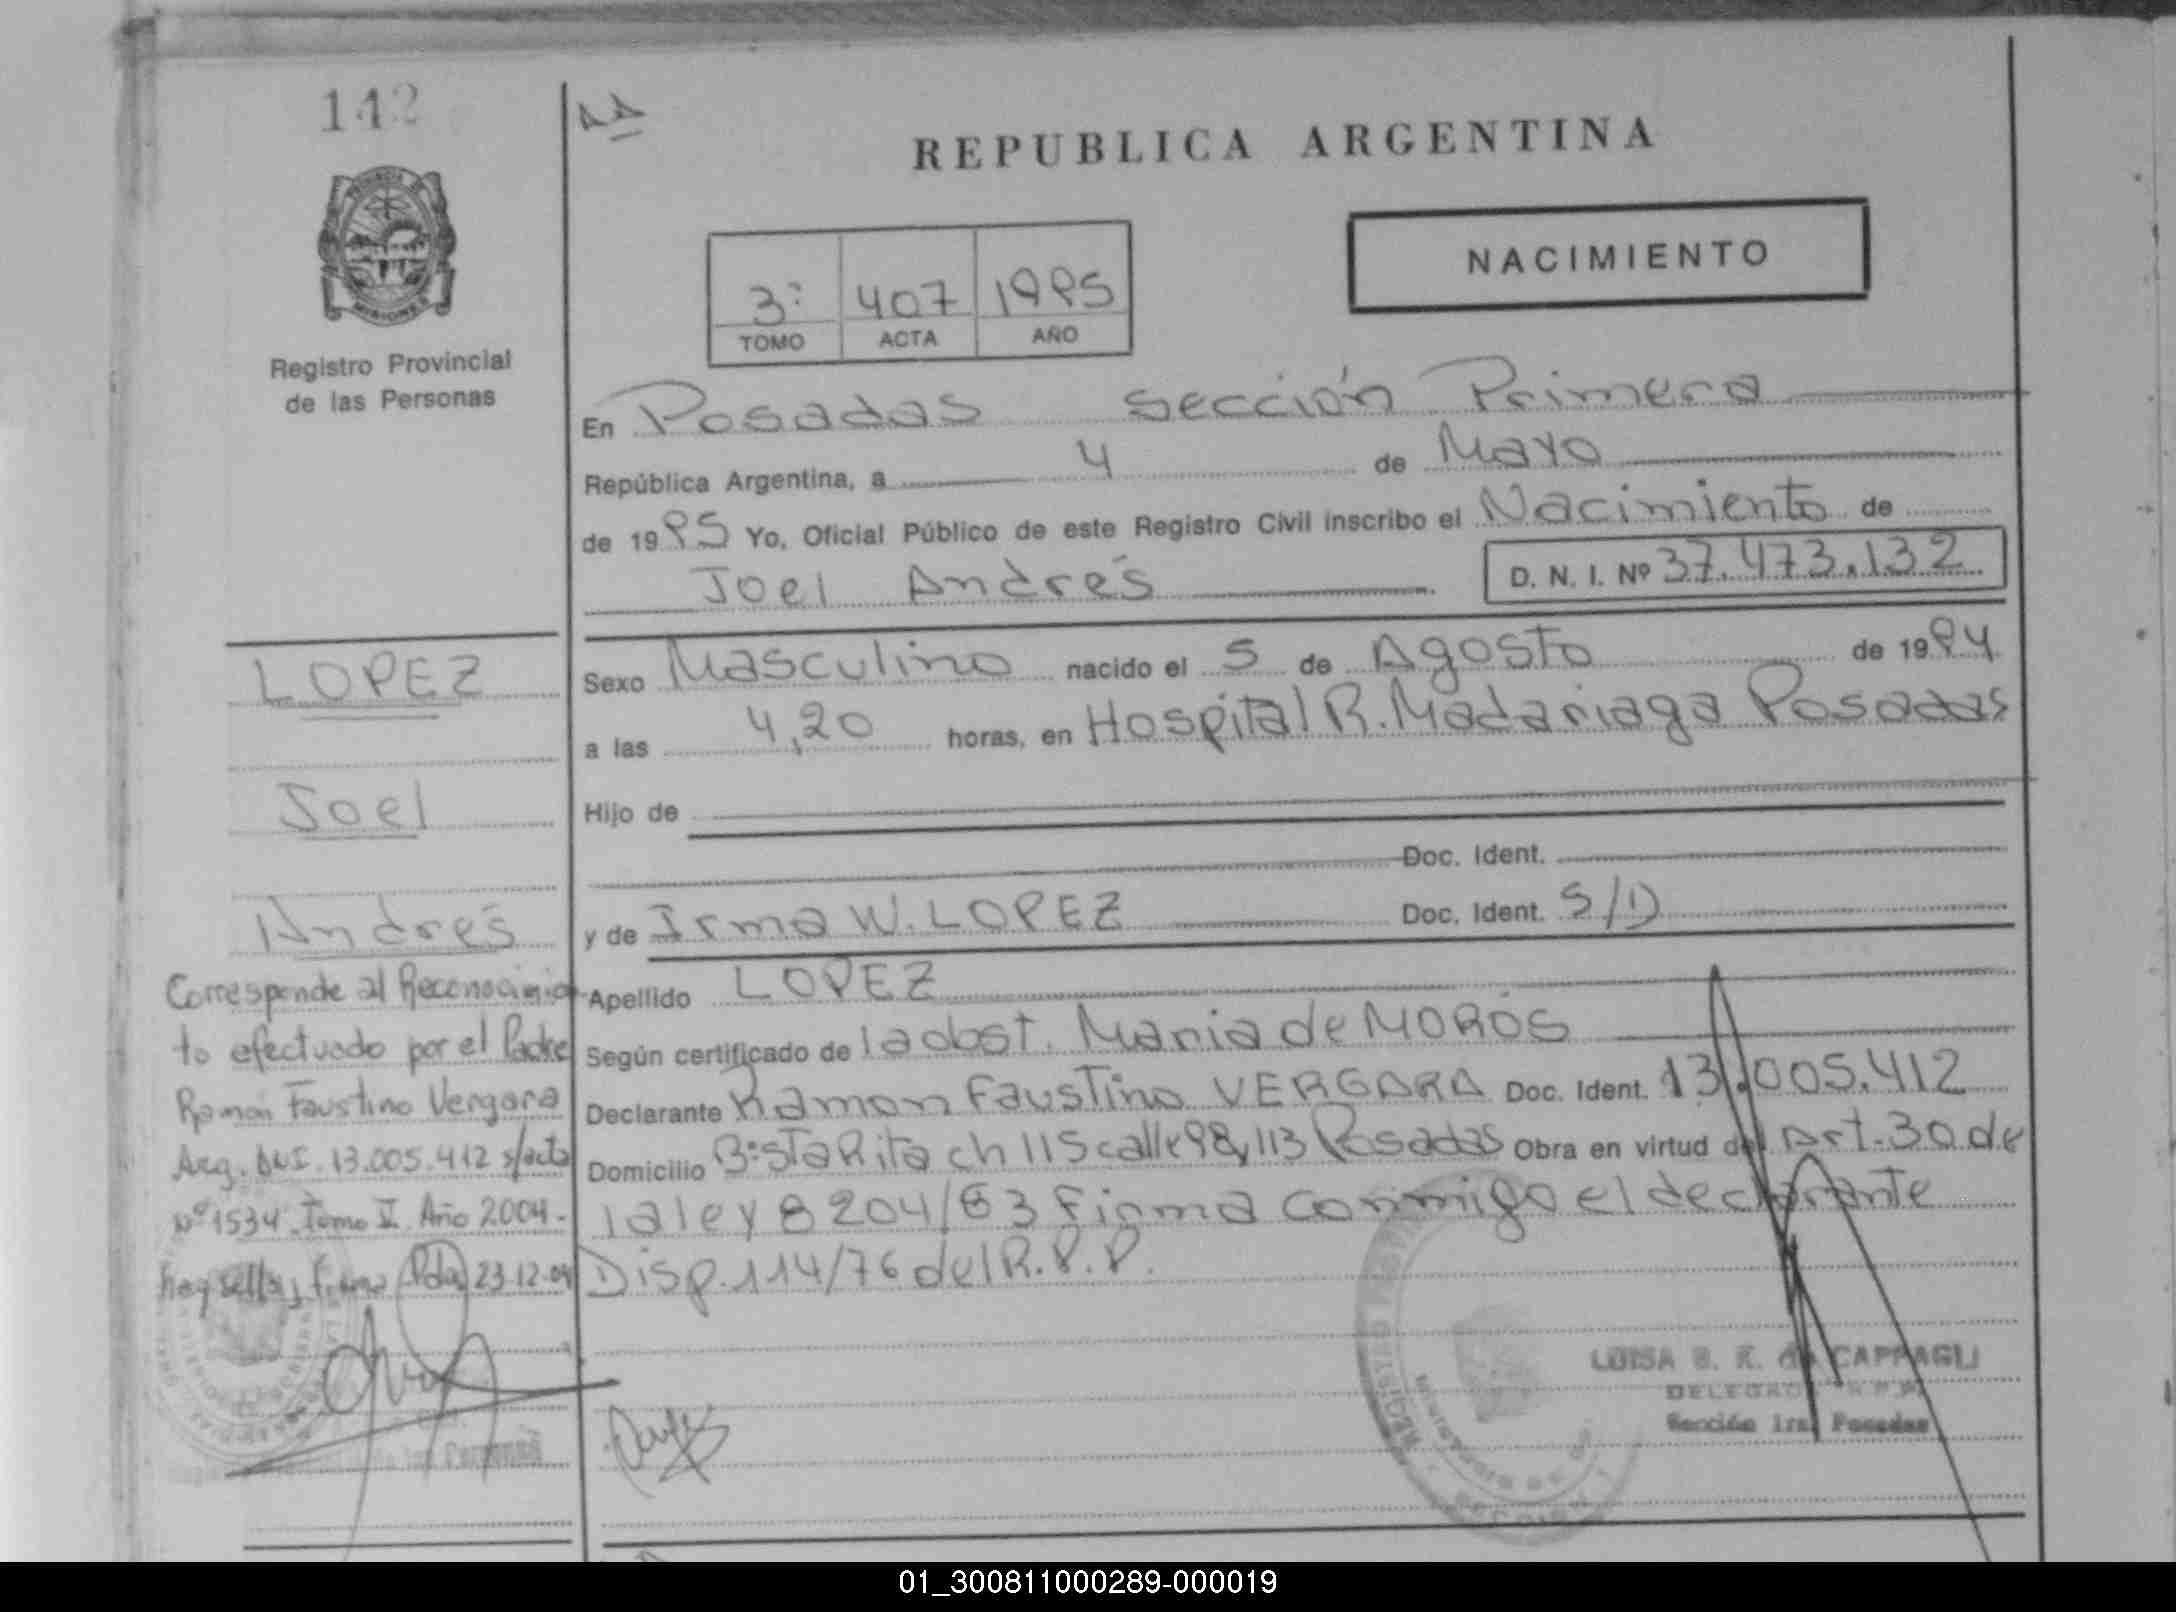 142
REPUBLICA ARGENTINA
PROVINCIA DE
MISIONES
Registro Provincial
de las Personas
NACIMIENTO
3º 407 1995
TOMO ACTA AÑO
En Posadas Sección Primera
República Argentina, a 4 de Mayo
de 1995 Yo, Oficial Público de este Registro Civil inscribo el Nacimiento de
Joel Andrés D. N. I. Nº 37.473.132
LOPEZ
Joel
Andrés
Sexo Masculino nacido el 5 de Agosto de 1994
a las 4,20 horas, en Hospital R. Madariaga Posadas
Hijo de
Doc. Ident.
y de Irma W. LOPEZ Doc. Ident. S/D
Apellido LOPEZ
Según certificado de la obst. Maria de MOROS
Declarante Ramon Faustino VERGARA Doc. Ident. 13.005.412
Domicilio Bº Sta Rita ch 115 calle 98 y 113 Posadas Obra en virtud del Art. 30 de
la ley 8204/63 firma conmigo el declarante
Disp. 114/76 del R.P.P.
Corresponde al Reconocimien
to efectuado por el Padre
Ramon Faustino Vergara
Arg. DNI. 13.005.412 s/acta
Nº 1534 Tomo II Año 2004.-
hay sello y firma Pdas 23-12-04
de las Personas
LUISA B. K. de CAPPAGLI
DELEGADO R.P.P.
Sección 1ra. Posadas
01_300811000289-000019